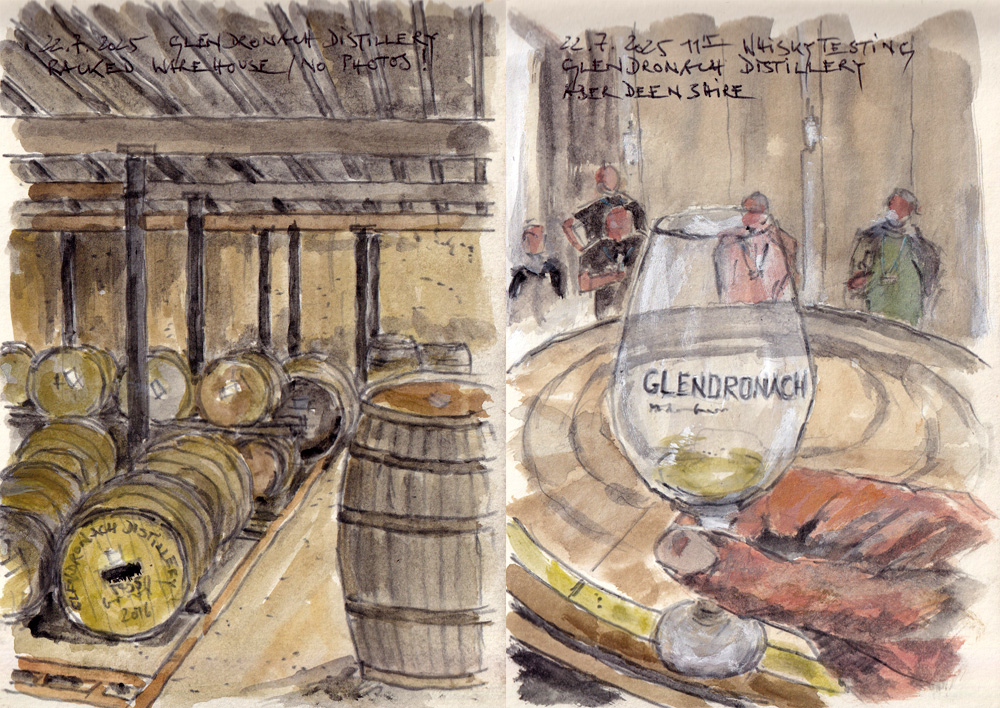 22.7.2025 GLENDRONACH DISTILLERY
RACKED WIREHOUSE / NO PHOTOS!
GLENDRONACH DISTILLERY
2016
22.7.2025 11 WHISKYTESTING
GLENDRONACH DISTILLERY
ABERDEENSHIRE
GLENDRONACH